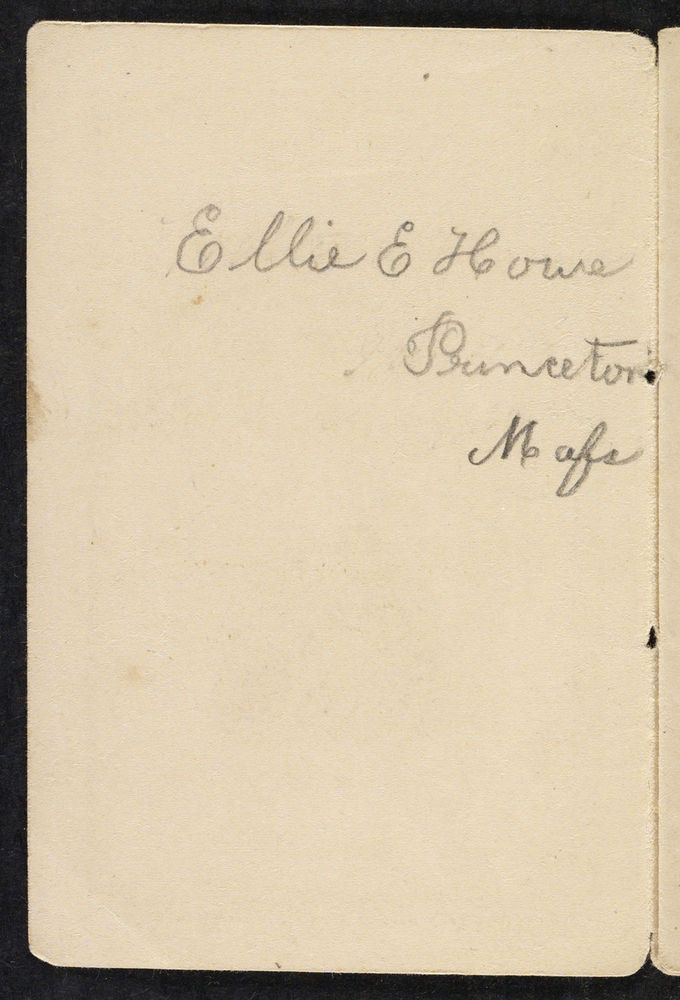 Ellie E Howe
Princeton
Maſs